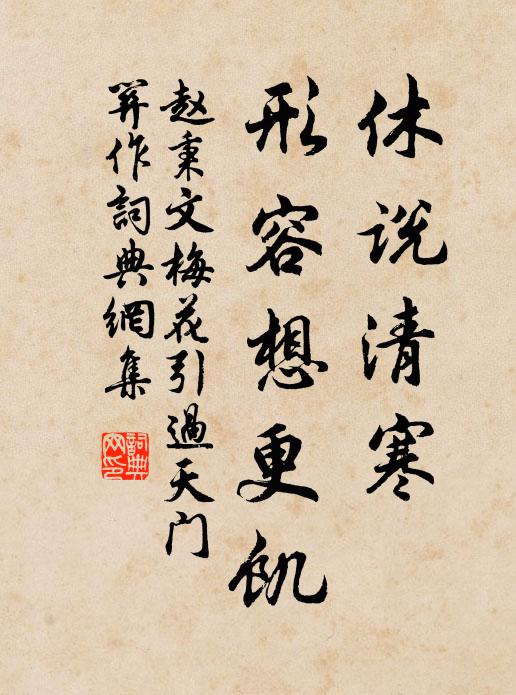 休说清寒
形容想更飢
赵秉文梅花引過天门
関作詞典網集
詞典網印